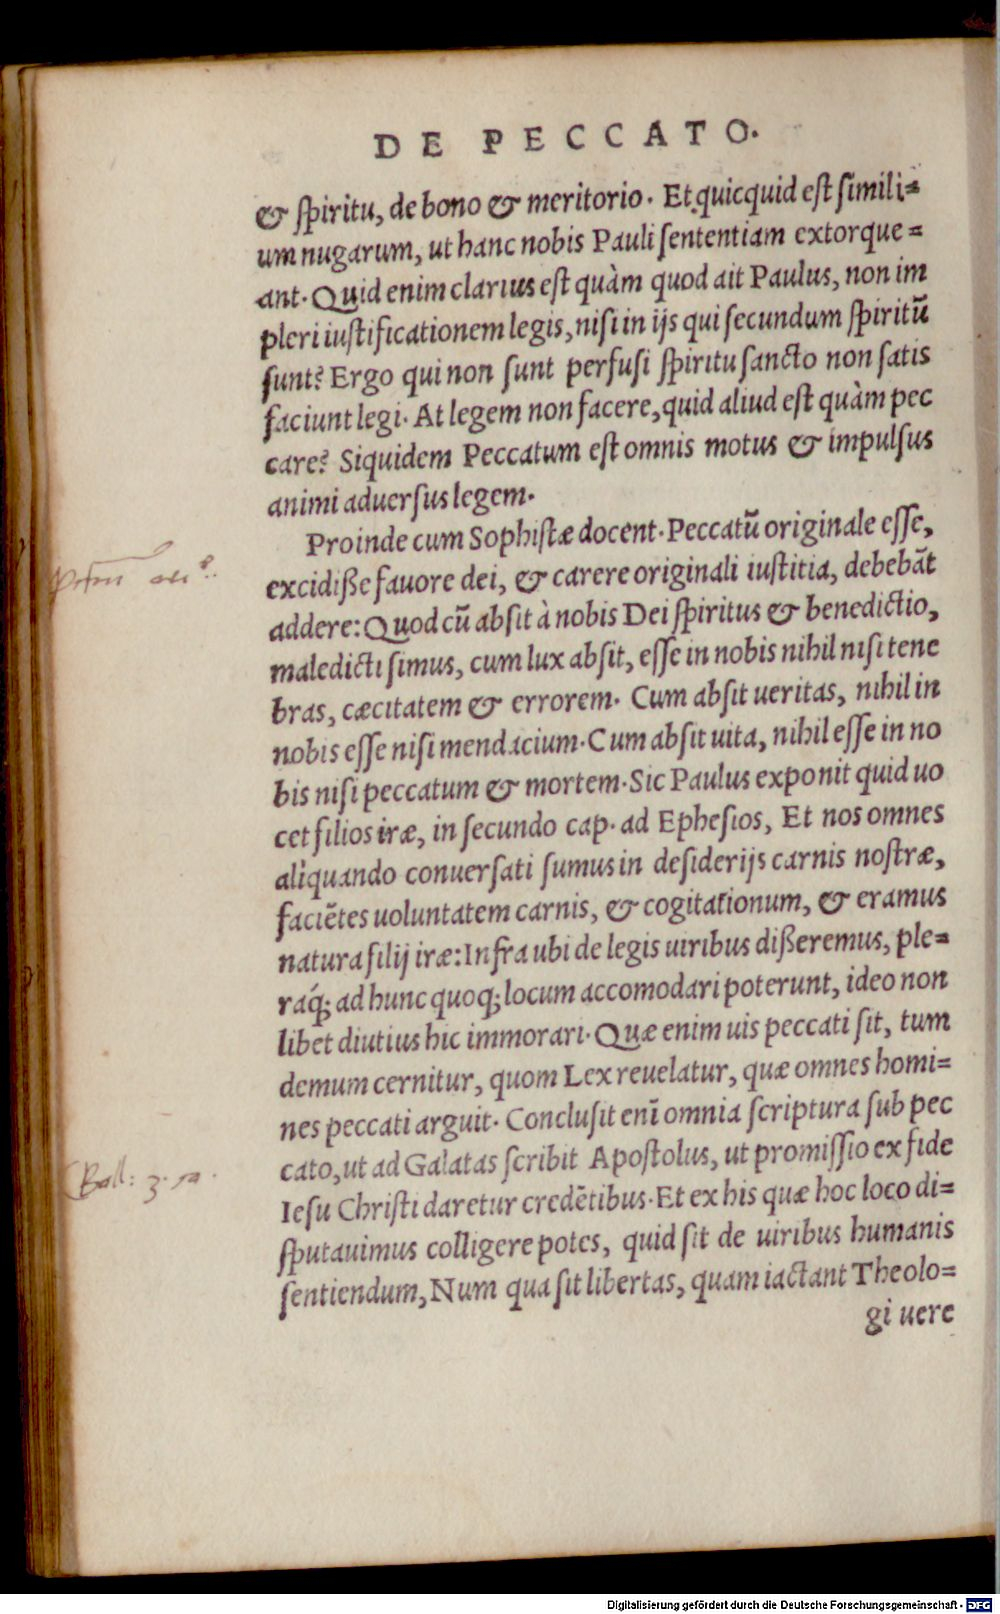 DE PECCATO.
& ſpiritu, de bono & meritorio. Et quicquid eſt ſimili=
um nugarum, ut hanc nobis Pauli ſententiam extorque=
ant. Quid enim clarius eſt quàm quod ait Paulus, non im
pleri iuſtificationem legis, niſi in ijs qui ſecundum ſpiritū
ſunt? Ergo qui non ſunt perfuſi ſpiritu ſancto non ſatis
faciunt legi. At legem non facere, quid aliud eſt quàm pec
care? Siquidem Peccatum eſt omnis motus & impulſus
animi aduerſus legem.
Proinde cum Sophiſtæ docent. Peccatū originale eſſe,
excidiße fauore dei, & carere originali iuſtitia, debebāt
addere: Quod cū abſit à nobis Dei ſpiritus & benedictio,
maledicti ſimus, cum lux abſit, eſſe in nobis nihil niſi tene
bras, cæcitatem & errorem. Cum abſit ueritas, nihil in
nobis eſſe niſi mendacium. Cum abſit uita, nihil eſſe in no
bis niſi peccatum & mortem. Sic Paulus exponit quid uo
cet filios iræ, in ſecundo cap. ad Epheſios, Et nos omnes
aliquando conuerſati ſumus in deſiderijs carnis noſtræ,
faciētes uoluntatem carnis, & cogitationum, & eramus
natura filij iræ: Infra ubi de legis uiribus dißeremus, ple=
ráq; ad hunc quoq; locum accomodari poterunt, ideo non
libet diutius hic immorari. Quæ enim uis peccati ſit, tum
demum cernitur, quom Lex reuelatur, quæ omnes homi=
nes peccati arguit. Concluſit enī omnia ſcriptura ſub pec
cato, ut ad Galatas ſcribit Apoſtolus, ut promiſſio ex fide
Ieſu Chriſti daretur credētibus. Et ex his quæ hoc loco di=
ſputauimus colligere potes, quid ſit de uiribus humanis
ſentiendum, Num qua ſit libertas, quam iactant Theolo=
gi uere
Digitalisierung gefördert durch die Deutsche Forschungsgemeinschaft - DFG